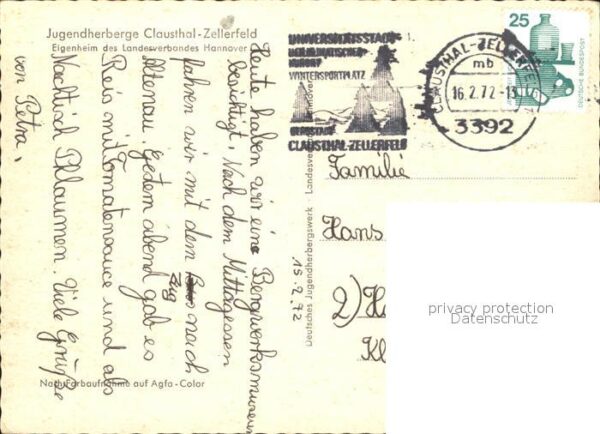 Jugendherberge Clausthal-Zellerfeld
Eigenheim des Landesverbandes Hannover
Heute haben wir eine Bergwerksmuseum
besichtigt. Nach dem Mittagessen
fahren wir mit dem Bus Zug nach
Altenau. Gestern abend gab es
Reis mit Tomatensauce und als
Nachtisch Pklaumen. Viele Grüße
von Petra.
15.2.72
Nach Farbaufnahme auf Agfa-Color
Deutsches Jugendherbergswerk
UNIVERSITÄTSSTADT
HEILKLIMATISCHER
KURORT
WINTERSPORTPLATZ
BERGSTADT
CLAUSTHAL-ZELLERFELD
CLAUSTHAL-ZELLERFELD
mb
16.2.72-13
3392
25
DEUTSCHE BUNDESPOST
Familie
Hans
2)
privacy protection
Datenschutz